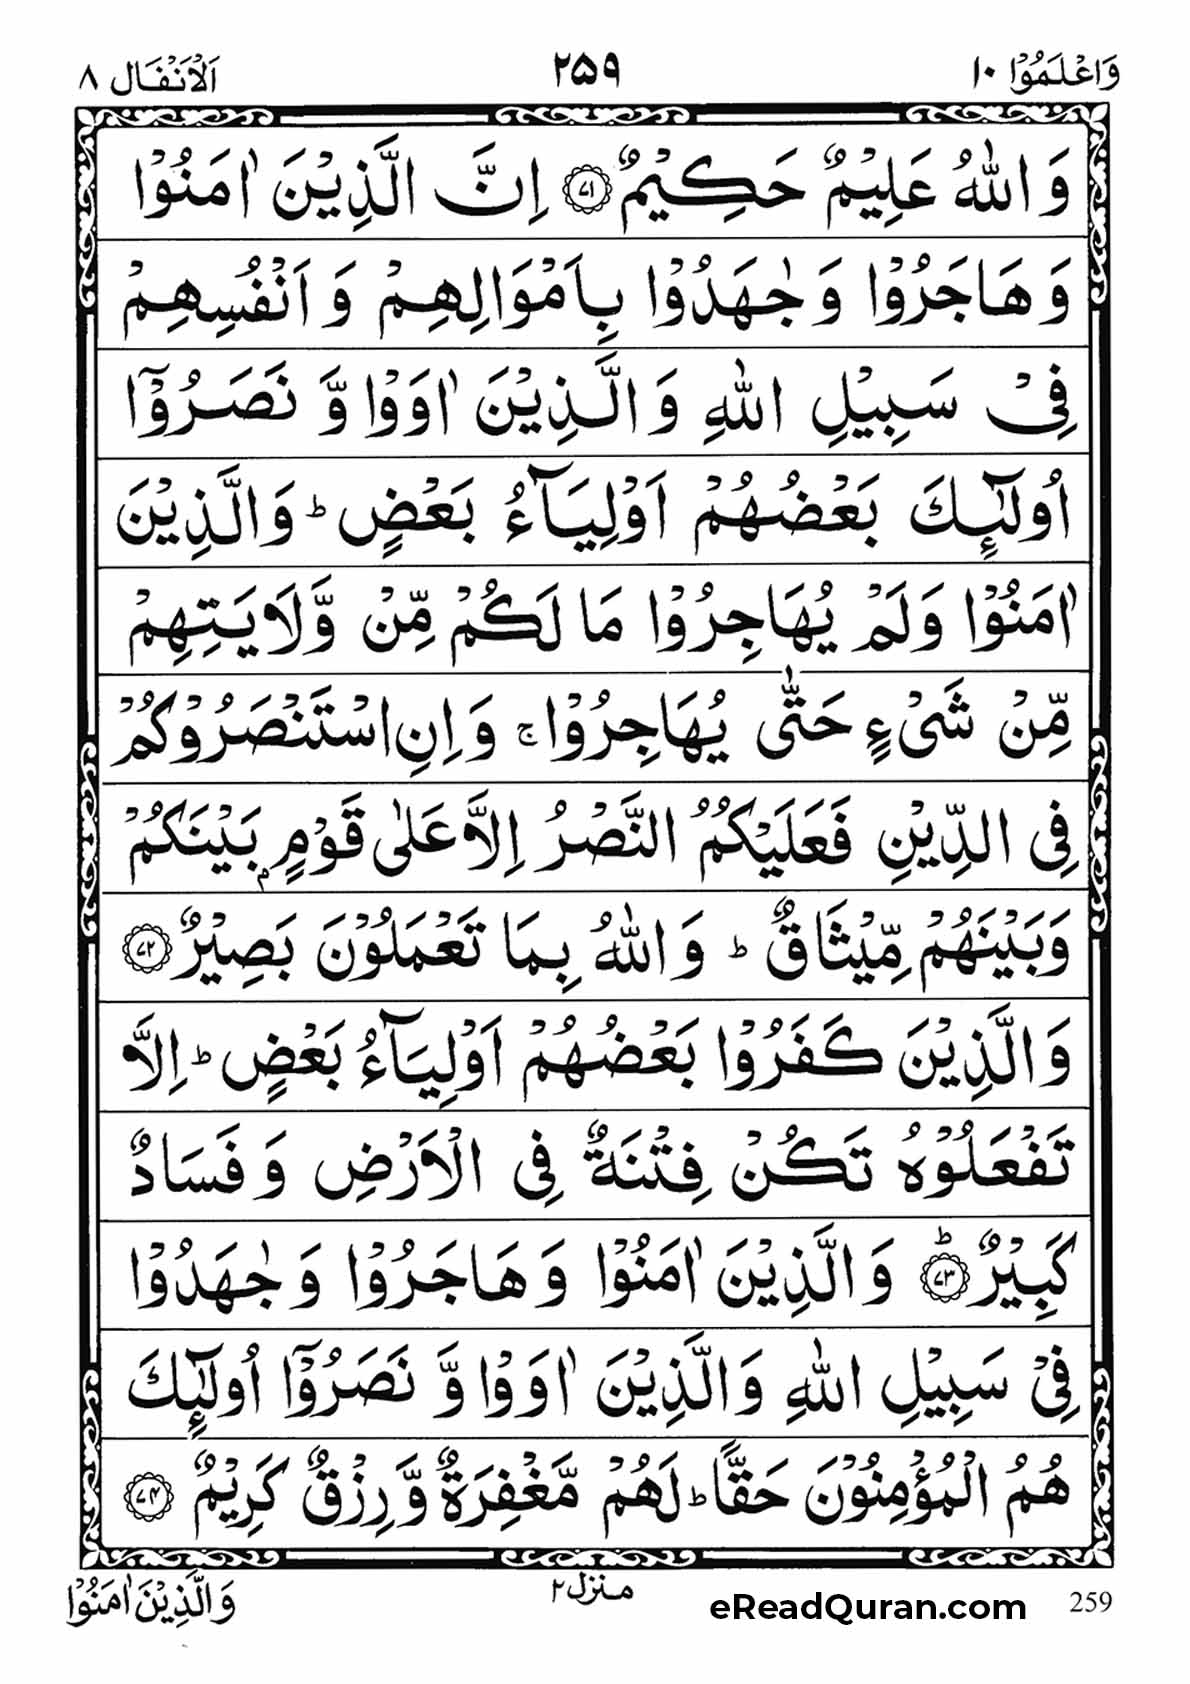 وَاعْلَمُوْٓا ١٠ ٢۵٩ اَلْاَنْفَال ٨
وَ اللّٰهُ عَلِيْمٌ حَكِيْمٌ ﴿٧١﴾ اِنَّ الَّذِيْنَ اٰمَنُوْا
وَ هَاجَرُوْا وَ جٰهَدُوْا بِاَمْوَالِهِمْ وَ اَنْفُسِهِمْ
فِيْ سَبِيْلِ اللّٰهِ وَ الَّذِيْنَ اٰوَوْا وَّ نَصَرُوْٓا
اُولٰٓئِكَ بَعْضُهُمْ اَوْلِيَآءُ بَعْضٍ ؕ وَ الَّذِيْنَ
اٰمَنُوْا وَ لَمْ يُهَاجِرُوْا مَا لَكُمْ مِّنْ وَّلَايَتِهِمْ
مِّنْ شَيْءٍ حَتّٰى يُهَاجِرُوْا ۚ وَ اِنِ اسْتَنْصَرُوْكُمْ
فِي الدِّيْنِ فَعَلَيْكُمُ النَّصْرُ اِلَّا عَلٰى قَوْمٍۭ بَيْنَكُمْ
وَ بَيْنَهُمْ مِّيْثَاقٌ ؕ وَ اللّٰهُ بِمَا تَعْمَلُوْنَ بَصِيْرٌ ﴿٧٢﴾
وَ الَّذِيْنَ كَفَرُوْا بَعْضُهُمْ اَوْلِيَآءُ بَعْضٍ ؕ اِلَّا
تَفْعَلُوْهُ تَكُنْ فِتْنَةٌ فِي الْاَرْضِ وَ فَسَادٌ
كَبِيْرٌ ؕ﴿٧٣﴾ وَ الَّذِيْنَ اٰمَنُوْا وَ هَاجَرُوْا وَ جٰهَدُوْا
فِيْ سَبِيْلِ اللّٰهِ وَ الَّذِيْنَ اٰوَوْا وَّ نَصَرُوْٓا اُولٰٓئِكَ
هُمُ الْمُؤْمِنُوْنَ حَقًّا ؕ لَهُمْ مَّغْفِرَةٌ وَّ رِزْقٌ كَرِيْمٌ ﴿٧۴﴾
وَ الَّذِيْنَ اٰمَنُوْا منزل٢ eReadQuran.com 259